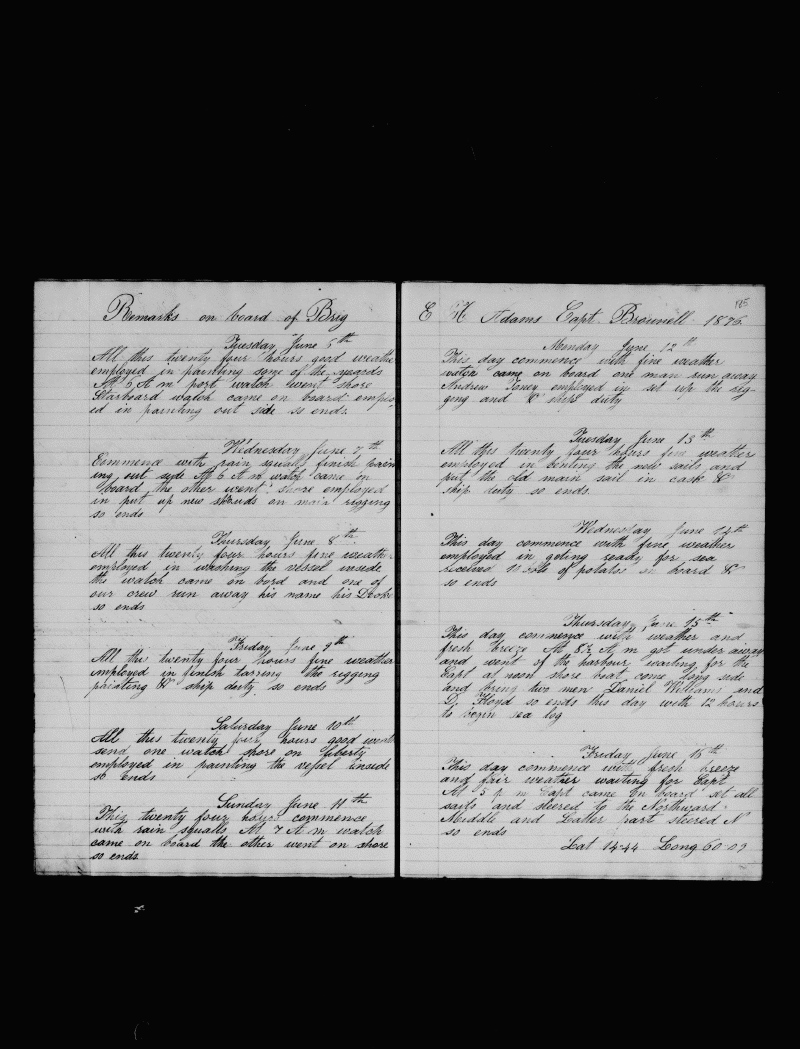 Remarks on board of Brig
Tuesday June 6th
All this twenty four hours good weathe
employed in painting some of the yards
At 6 A m port watch went shore
Starboard watch came on board emplo
ed in painting out side so ends
Wednesday June 7th
Commence with rain squalls finish pain
ing out syde At 6 A m watch came on
board the other went shore employed
in put up new shrouds on main rigging
so ends
Thursday June 8th
All this twenty four hours fine weath
employed in washing the vessel inside
the watch came on bord and one of
our crew run away his name his
so ends
Friday June 9th
All the twenty four hours fine weather
employed in finish tarring the rigging
painting &c ship duty so ends
Saturday June 10th
All this twenty four hours good weath
send one watch shore on liberty
employed in painting the vessel inside
so ends
Sunday June 11th
This twenty four hours commence
with rain squalls At 7 A m watch
came on board the other went on shore
so ends
185
E H Adams Capt. Brownell 1876
Monday June 12th
This day commence with fine weather
watch came on board one man run away
Andrew employed in set up the rig-
ging and &c ships duty
Tuesday June 13th
All this twenty four hours fine weather
employed in benting the new sails and
put the old main sail in cask &c
ship duty so ends
Wednesday June 14th
This day commence with fine weather
employed in geting ready for sea
received 10 bbls of potatos on board &c
so ends
Thursday June 15th
This day commence with weather and
fresh breeze At 8½ A m got under away
and went of the harbour waiting for the
Capt at noon shore boat come long side
and bring two men Daniel Williams and
D. Floyd so ends this day with 12 hours
to begin sea log
Friday June 16th
This day commence with fresh breeze
and fair weather waiting for Capt
At 5 p m Capt came on board set all
sails and steered to the Northward
Middle and Latter part steered N
so ends
Lat 14-44 Long 60-09